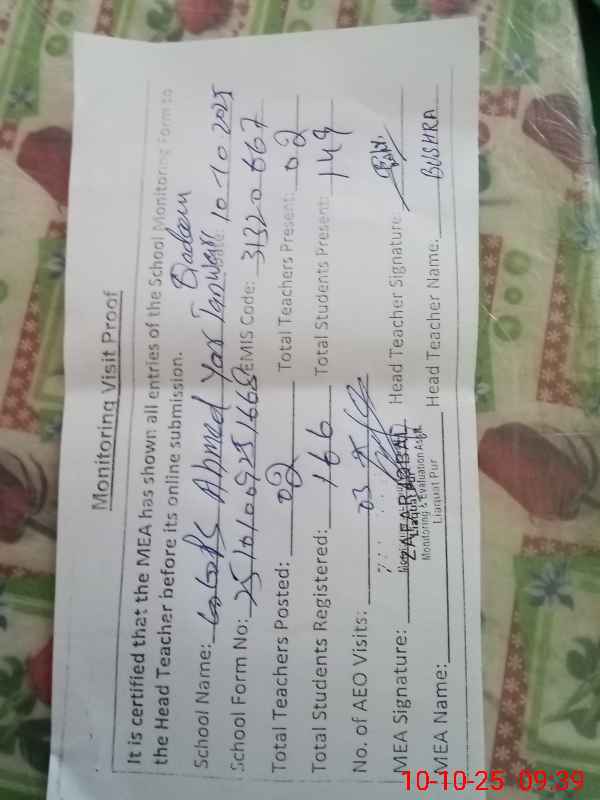 Monitoring Visit Proof
It is certified that the MEA has shown all entries of the School Monitoring Form to
the Head Teacher before its online submission.
School Name: Ahmed Yar Date: 10-10-2025
School Form No: EMIS Code: 31320667
Total Teachers Posted: 02 Total Teachers Present: 02
Total Students Registered: 166 Total Students Present: 149
No. of AEO Visits: 03
MEA Signature: Head Teacher Signature:
ZAFAR IQBAL
Monitoring & Evaluation Asstt
Liaquat Pur
MEA Name: Head Teacher Name: BUSHRA
10-10-25 09:39